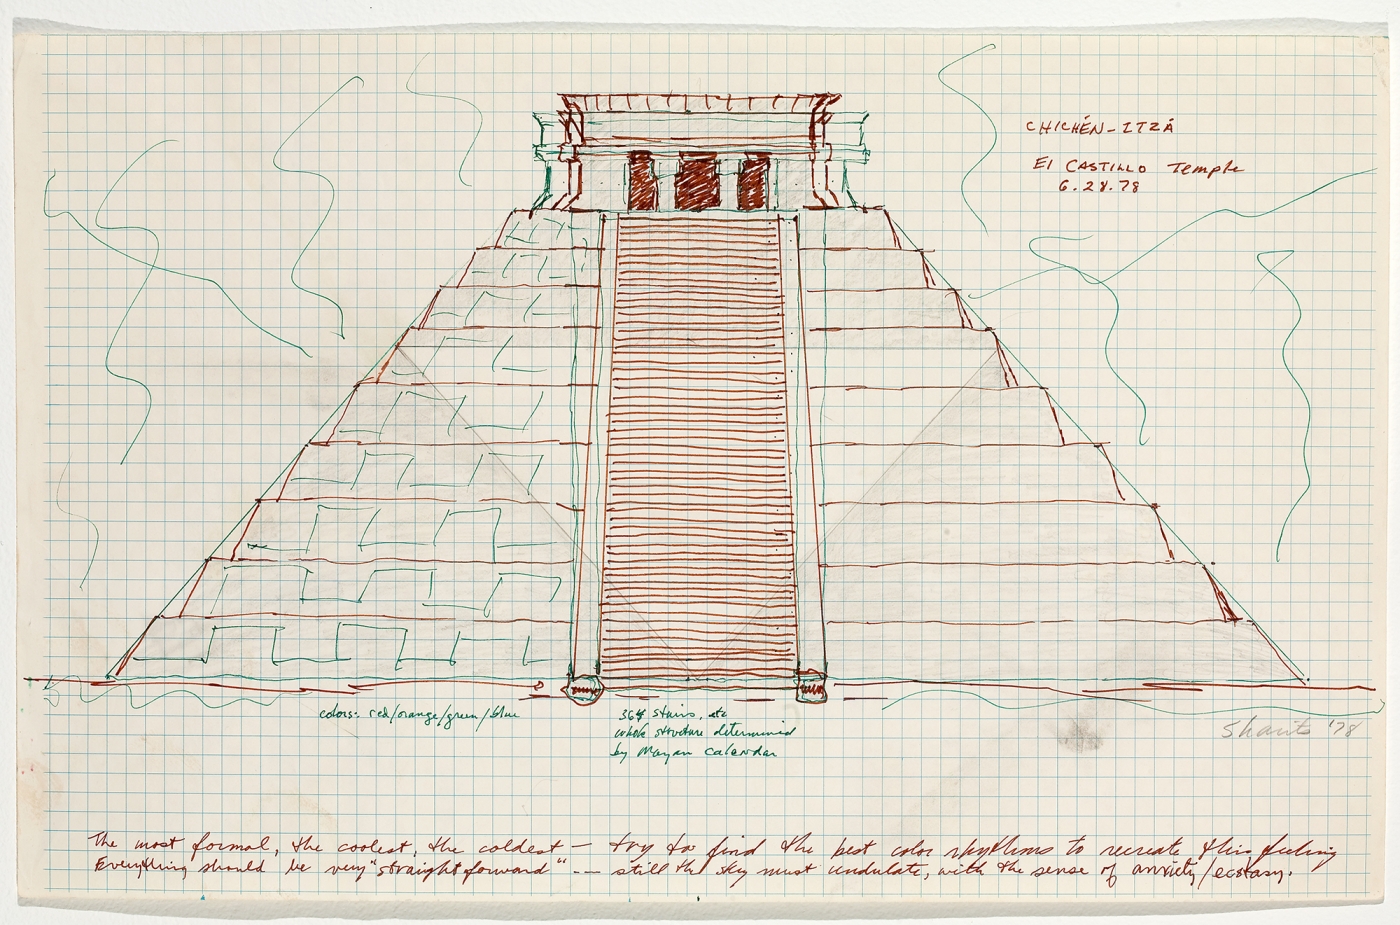 CHICHÉN-ITZÁ
El CASTILLO Temple
6.28.78
colors: red/orange/green/blue
364 stairs, etc
whole structure determined
by Mayan calendar
Sharits '78
The most formal, the coolest, the coldest — try to find the best color rhythms to recreate this feeling
Everything should be very "straightforward" -- still the sky must undulate, with the sense of anxiety/ecstasy.